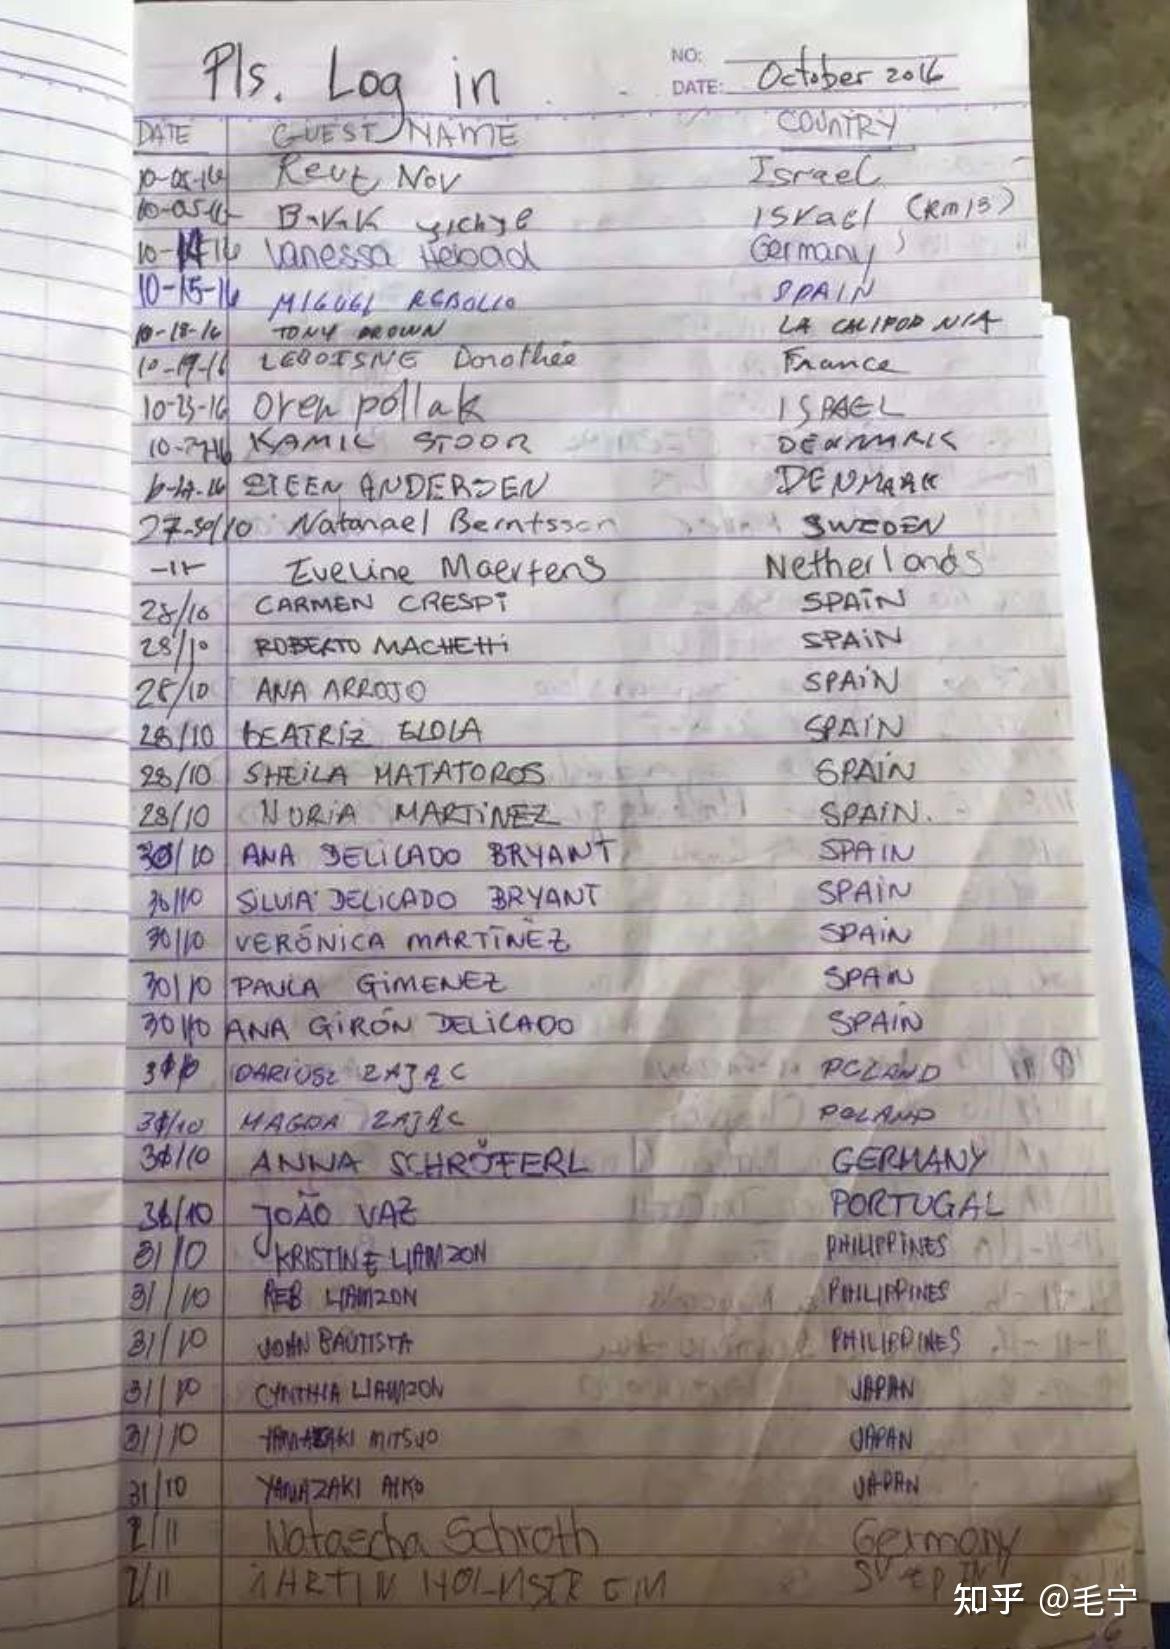 Pls. Log in
NO:
DATE: October 2016
DATE GUEST NAME COUNTRY
10-05-16 Reut Nov Israel
10-05-16 Israel (Rm13)
10-14-16 Vanessa Germany
10-15-16 MIGUEL REBOLLO SPAIN
10-18-16 TONY BROWN LA CALIFORNIA
10-19-16 LEBOISNE Dorothée France
10-23-16 Oren pollak ISRAEL
KAMIL STOOR DENMARK
STEEN ANDERSEN DENMARK
27-30/10 Natanael Berntsson SWEDEN
-11- Eveline Maertens Netherlands
28/10 CARMEN CRESPI SPAIN
28/10 ROBERTO MACHETTI SPAIN
28/10 ANA ARROJO SPAIN
28/10 BEATRIZ ELOLA SPAIN
28/10 SHEILA MATATOROS SPAIN
28/10 NURIA MARTINEZ SPAIN.
30/10 ANA DELICADO BRYANT SPAIN
30/10 SILVIA DELICADO BRYANT SPAIN
30/10 VERÓNICA MARTÍNEZ SPAIN
30/10 PAULA GIMENEZ SPAIN
30/10 ANA GIRÓN DELICADO SPAIN
DARIUSZ ZAJĄC POLAND
31/10 MAGDA ZAJĄC POLAND
31/10 ANNA SCHRÖFERL GERMANY
31/10 JOÃO VAZ PORTUGAL
31/10 KRISTINE LIAMZON PHILIPPINES
31/10 REB LIAMZON PHILIPPINES
31/10 JOHN BAUTISTA PHILIPPINES
31/10 CYNTHIA LIAMZON JAPAN
31/10 YAMAZAKI MITSUO JAPAN
31/10 YAMAZAKI AIKO JAPAN
2/11 Natascha Schroth Germany
2/11 MARTIN HOLMSTRÖM
知乎 @毛宁